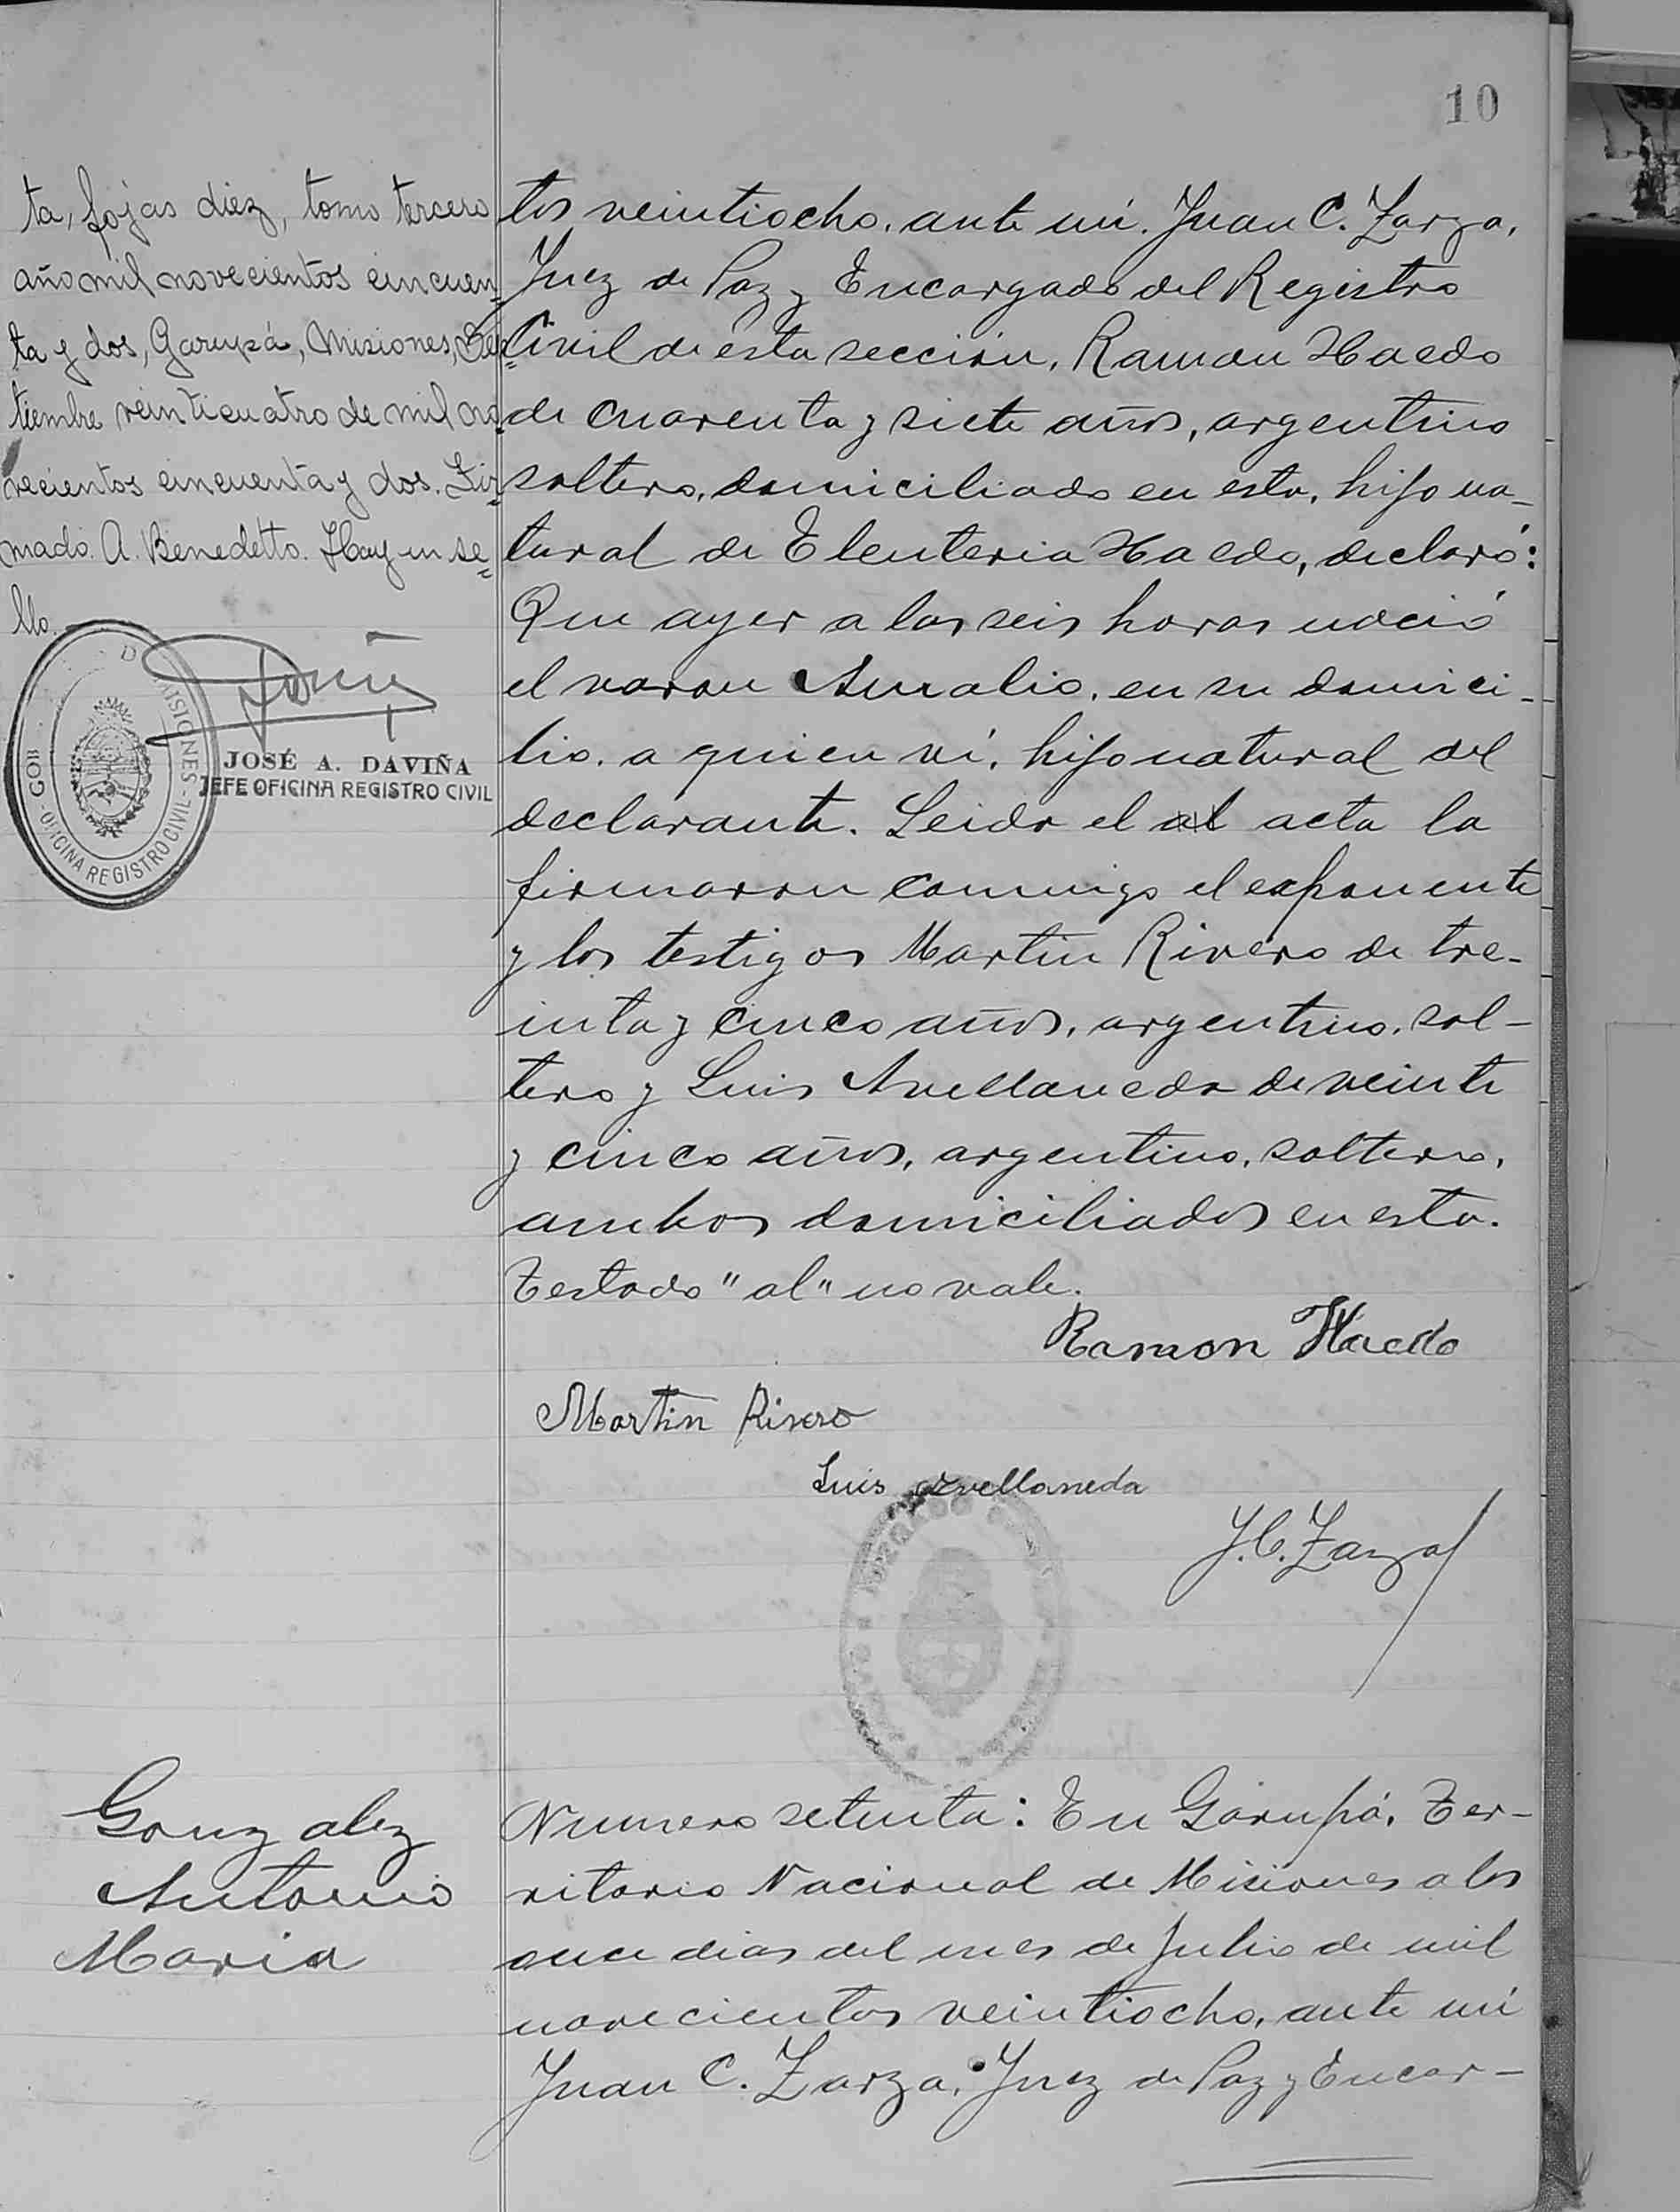 10
ta, fojas diez, tomo tercero
año mil novecientos cincuen-
ta y dos, Garupá, Misiones, Se-
tiembre veinticuatro de mil no-
vecientos cincuenta y dos. Fir-
mado. A. Benedetto. Hay un se-
llo.
JOSÉ A. DAVIÑA
JEFE OFICINA REGISTRO CIVIL
GOB MISIONES - OFICINA REGISTRO CIVIL -
tos veintiocho, ante mí. Juan C. Zarza,
Juez de Paz y Encargado del Registro
Civil de esta sección, Ramon Haedo
de cuarenta y siete años, argentino
soltero, domiciliado en esta, hijo na-
tural de Eleuteria Haedo, declaró:
Que ayer a las seis horas nació
el varon Amalio, en su domici-
lio, a quien ví, hijo natural del
declarante. Leida el al acta la
firmaron conmigo el exponente
y los testigos Martin Rivero de tre-
inta y cinco años, argentino, sol-
tero y Luis Avellaneda de veinte
y cinco años, argentino, soltero,
ambos domiciliados en esta.
Testado "al" no vale.
Ramon Haedo
Martin Rivero
Luis Avellaneda
J. C. Zarza
Gonzalez
Antonio
Maria
Numero setenta: En Garupá, Ter-
ritorio Nacional de Misiones a los
once dias del mes de Julio de mil
novecientos veintiocho, ante mí
Juan C. Zarza, Juez de Paz y Encar-